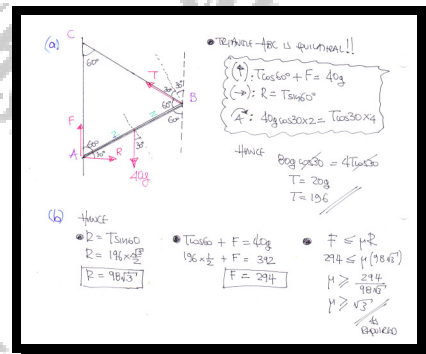 (a)
C
60°
T
30°
30°
B
60°
60°
2
2
F
60°
30°
R
A
30°
40g
• TRIANGLE ABC IS EQUILATERAL!!
(↑): Tcos60° + F = 40g
(→): R = Tsin60°
A: 40gcos30×2 = Tcos30×4
HENCE
80g cos30 = 4Tcos30
T = 20g
T = 196
(b) HENCE
• R = Tsin60
R = 196×√3/2
R = 98√3
• Tcos60 + F = 40g
196×1/2 + F = 392
F = 294
• F ≤ μR
294 ≤ μ(98√3)
μ ≥ 294/98√3
μ ≥ √3
AS
REQUIRED